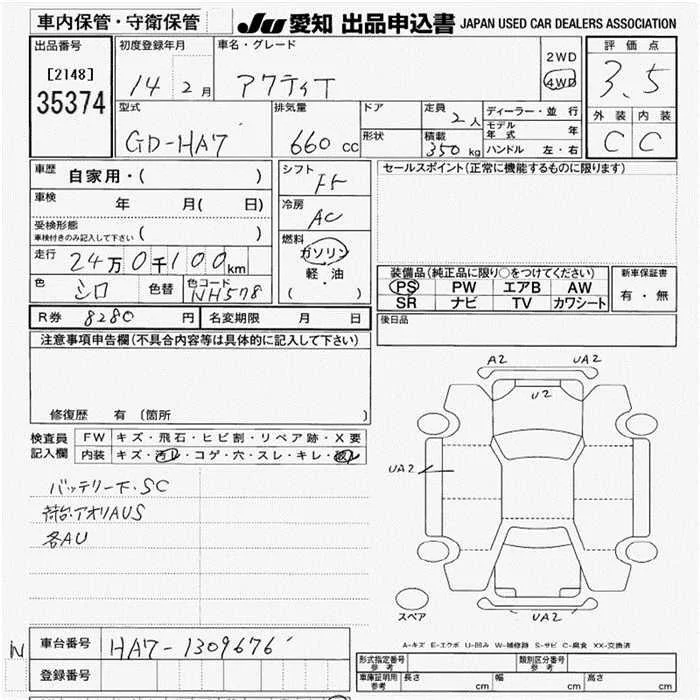 車内保管・守衛保管 JU 愛知 出品申込書 JAPAN USED CAR DEALERS ASSOCIATION
出品番号 初度登録年月 車名・グレード 評価点
[2148] 14 2月 アクティT 2WD 4WD 3.5
35374
型式 排気量 ドア 定員 2人 ディーラー・並行 外装 内装
GD-HA7 660cc 形状 積載 350kg モデル年式 年 C C
ハンドル 左・右
車歴 自家用・( ) シフト F5 セールスポイント(正常に機能するものに限ります)
車検 年 月( 日) 冷房 AC
受検形態
車検付きのみ記入して下さい ( )
走行 24万0千100km 燃料 ガソリン 軽・油 ( )
装備品(純正品に限り○をつけてください) 新車保証書
色 シロ 色替 色コード NH578 PS PW エアB AW 有・無
SR ナビ TV カワシート
R券 8280円 名変期限 月 日 後日品
注意事項申告欄(不具合内容等は具体的に記入して下さい)
A2 UA2
U2
修復歴 有 〔箇所 〕
検査員 FW キズ・飛石・ヒビ割・リペア跡・X要
記入欄 内装 キズ・汚レ・コゲ・穴・スレ・キレ・
UA2
バッテリー下・SC
荷台.アオリAUS
各AU
スペア UA2
A-キズ E-エクボ U-凹み W-補修跡 S-サビ C-腐食 XX-交換済
N 車台番号 HA7-1309676
登録番号
形式指定番号 参考 類別区分番号 参考
車庫証明用 参考 長さ cm 幅 cm 高さ cm